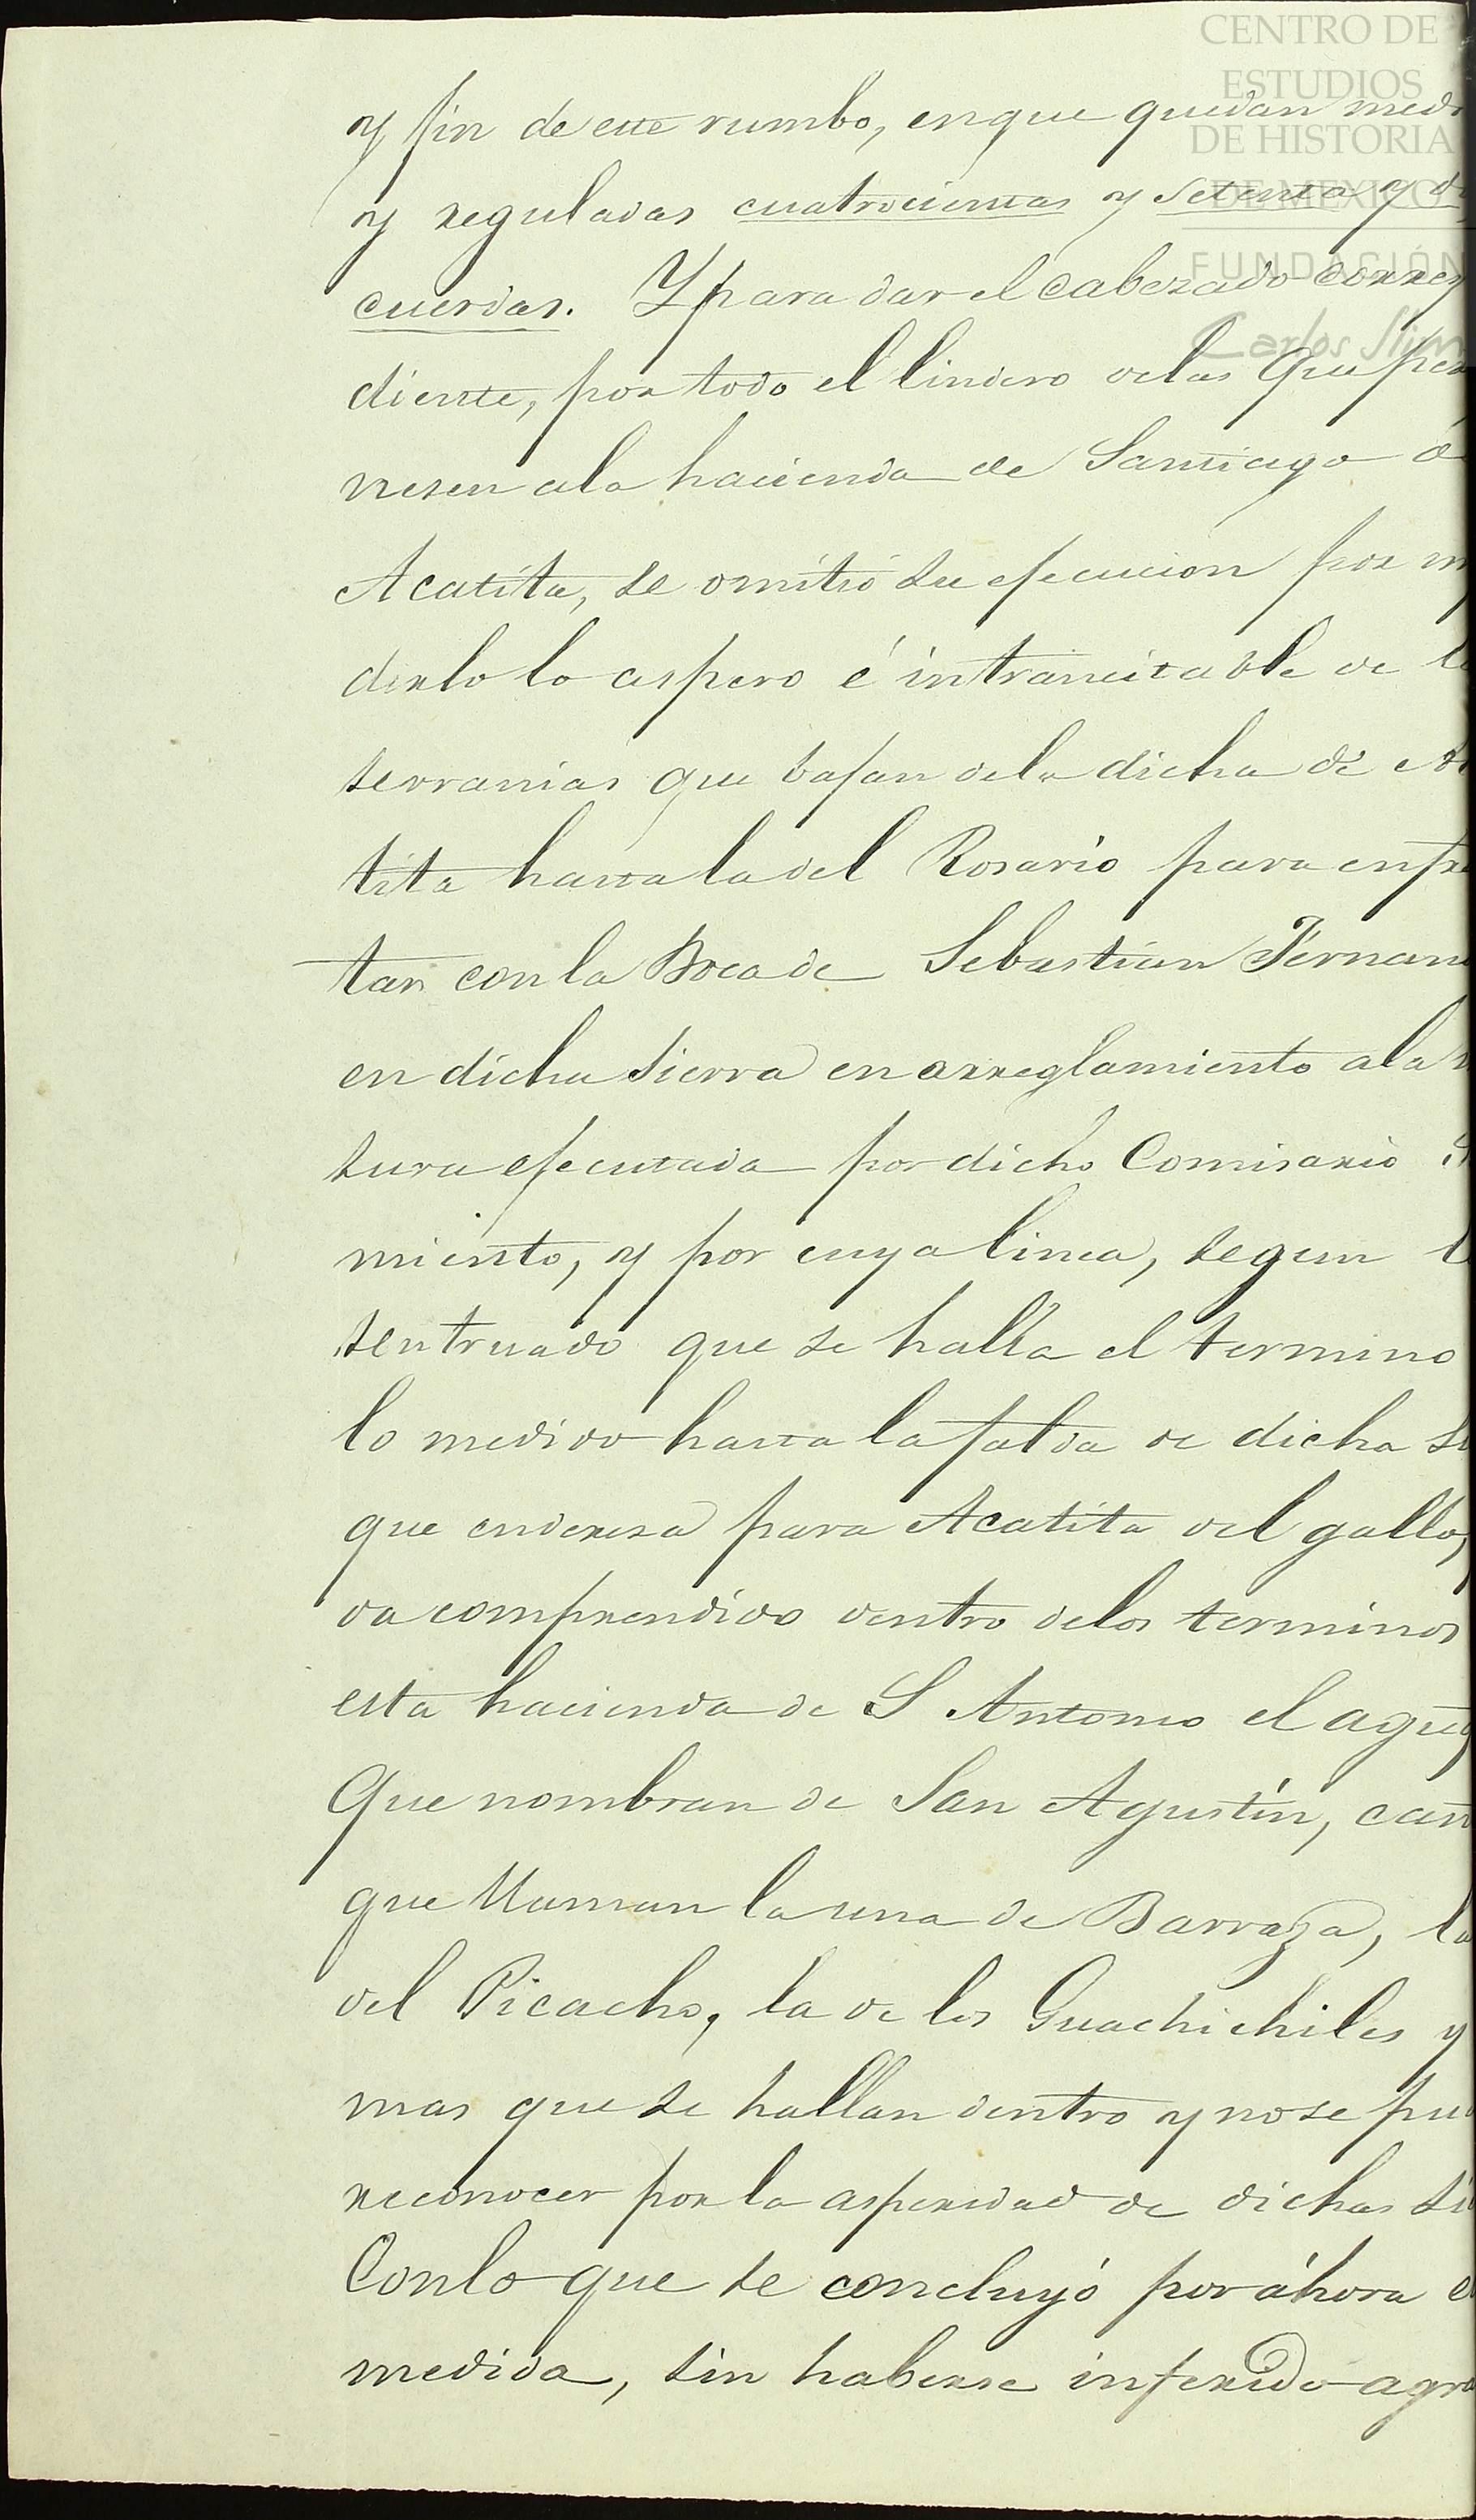 CENTRO DE
ESTUDIOS
DE HISTORIA
DE MEXICO
FUNDACIÓN
Carlos Slim
y fin de este rumbo, en que quedan med
y reguladas cuatrocientas y setenta y d
cuerdas. Y para dar el cabezado corres
diente, por todo el lindero delas Que per
nesen ala hacienda de Santiago ó
Acatita, se omitió su ejecucion por
dirlo lo aspero é intransitable de l
serranias que bajan dela dicha de
tita hasta la del Rosario para enfre
tar con la Boca de Sebastian Fernan
en dicha Sierra en arreglamiento ala
sura ejecutada por dicho Comisario
miento, y por cuya linea, segun l
sentruado que se halla el termino
lo medido hasta la falda de dicha
que enderesa para Acatita del gallo,
da comprendido dentro delos terminos
esta hacienda de S Antonio el agu
Que nombran de San Agustin, can
que llaman la una de Barraza, la
del Picacho, la de los Guachichiles y
mas que se hallan dentro y no se pu
reconocer por la asperidad de dichas si
Con lo que se concluyó por áhora
medida, sin haberse inferido agra